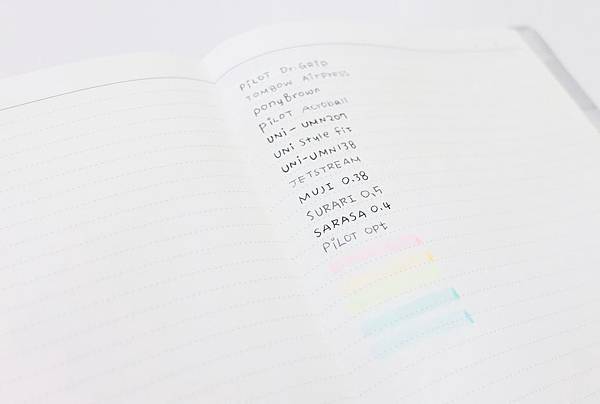 PiLOT Dr.Grip
TOMBOW AirPress
ponyBrown
PiLOT Acroball
UNi-UMN207
UNi Style fit
UNi-UMN138
JETSTREAM
MUJI 0.38
SURARI 0,5
SARASA 0.4
PiLOT opt